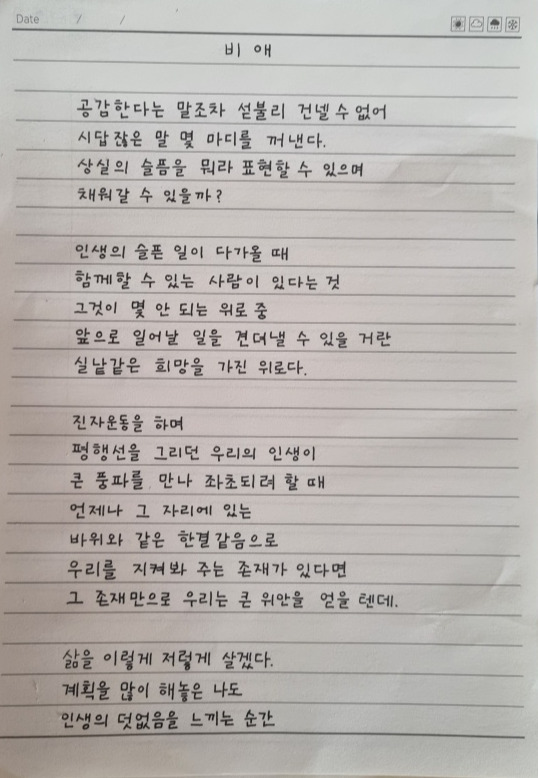 Date / /
비애
공감한다는 말조차 섣불리 건넬 수 없어
시답잖은 말 몇 마디를 꺼낸다.
상실의 슬픔을 뭐라 표현할 수 있으며
채워갈 수 있을까?
인생의 슬픈 일이 다가올 때
함께할 수 있는 사람이 있다는 것
그것이 몇 안 되는 위로 중
앞으로 일어날 일을 견뎌낼 수 있을 거란
실낱같은 희망을 가진 위로다.
진자운동을 하며
평행선을 그리던 우리의 인생이
큰 풍파를 만나 좌초되려 할 때
언제나 그 자리에 있는
바위와 같은 한결같음으로
우리를 지켜봐 주는 존재가 있다면
그 존재만으로 우리는 큰 위안을 얻을 텐데.
삶을 이렇게 저렇게 살겠다.
계획을 많이 해놓은 나도
인생의 덧없음을 느끼는 순간